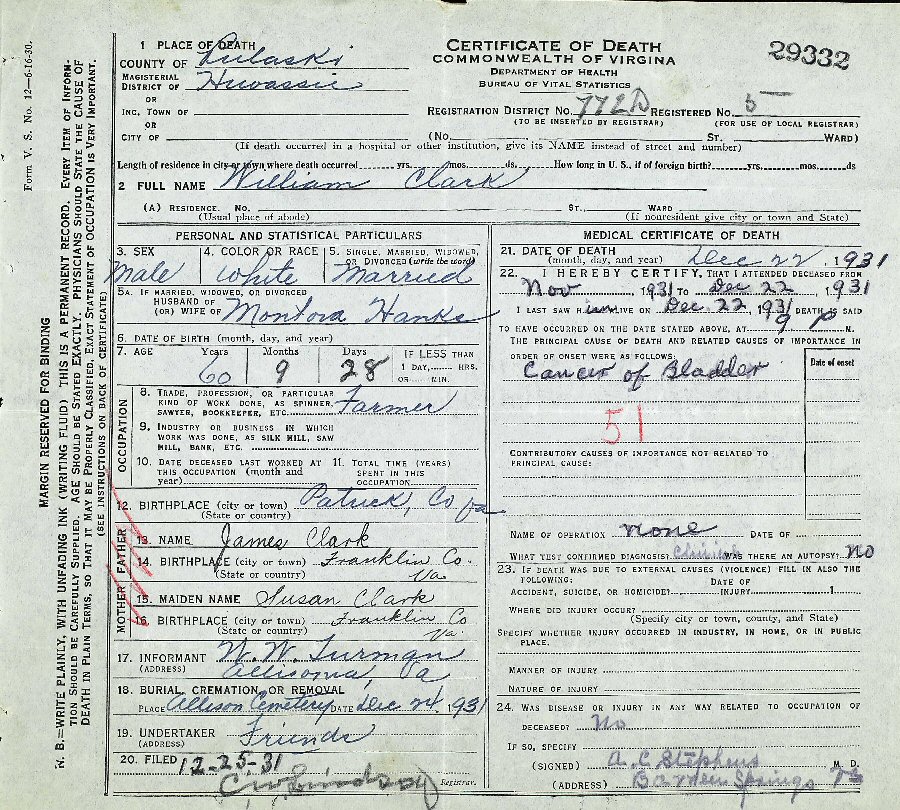 Form V. S. No. 12—6-16-30.
MARGIN RESERVED FOR BINDING
N. B.=WRITE PLAINLY, WITH UNFADING INK (WRITING FLUID) THIS IS A PERMANENT RECORD. EVERY ITEM OF INFORM-
TION SHOULD BE CAREFULLY SUPPLIED. AGE SHOULD BE STATED EXACTLY. PHYSICIANS SHOULD STATE THE CAUSE OF
DEATH IN PLAIN TERMS, SO THAT IT MAY BE PROPERLY CLASSIFIED. EXACT STATEMENT OF OCCUPATION IS VERY IMPORTANT.
(SEE INSTRUCTIONS ON BACK OF CERTIFICATE)
1 PLACE OF DEATH
COUNTY OF Pulaski
MAGISTERIAL
DISTRICT OF Hiwassie
OR
INC. TOWN OF
OR
CITY OF
CERTIFICATE OF DEATH
COMMONWEALTH OF VIRGINIA
DEPARTMENT OF HEALTH
BUREAU OF VITAL STATISTICS
29332
REGISTRATION DISTRICT NO. 772D REGISTERED NO. 5
(TO BE INSERTED BY REGISTRAR) (FOR USE OF LOCAL REGISTRAR)
(No. ST. WARD)
(If death occurred in a hospital or other institution, give its NAME instead of street and number)
Length of residence in city or town where death occurred yrs. mos. ds. How long in U. S., if of foreign birth? yrs. mos. ds
2 FULL NAME William Clark
(A) RESIDENCE. No. ST., WARD
(Usual place of abode) (If nonresident give city or town and State)
PERSONAL AND STATISTICAL PARTICULARS
3. SEX 4. COLOR OR RACE 5. SINGLE, MARRIED, WIDOWED,
OR DIVORCED (write the word)
Male White Married
5A. IF MARRIED, WIDOWED, OR DIVORCED
HUSBAND OF
(OR) WIFE OF Montova Hanks
6. DATE OF BIRTH (month, day, and year)
7. AGE Years Months Days IF LESS THAN
1 DAY, HRS.
OR MIN.
60 9 28
OCCUPATION
8. TRADE, PROFESSION, OR PARTICULAR
KIND OF WORK DONE, AS SPINNER,
SAWYER, BOOKKEEPER, ETC. Farmer
9. INDUSTRY OR BUSINESS IN WHICH
WORK WAS DONE, AS SILK MILL, SAW
MILL, BANK, ETC.
10. DATE DECEASED LAST WORKED AT 11. TOTAL TIME (YEARS)
THIS OCCUPATION (month and SPENT IN THIS
year) OCCUPATION
12. BIRTHPLACE (city or town) Patrick, Co Va
(State or country)
FATHER
13. NAME James Clark
14. BIRTHPLACE (city or town) Franklin Co.
(State or country) Va
MOTHER
15. MAIDEN NAME Susan Clark
16. BIRTHPLACE (city or town) Franklin Co
(State or country) Va.
17. INFORMANT W. W. Turman
(ADDRESS) Allisonia, Va
18. BURIAL, CREMATION, OR REMOVAL
PLACE Allison Cemetery DATE Dec 24, 1931
19. UNDERTAKER Friends
(ADDRESS)
20. FILED 12-25-31
Registrar.
MEDICAL CERTIFICATE OF DEATH
21. DATE OF DEATH
(month, day, and year) Dec 22, 1931
22. I HEREBY CERTIFY, THAT I ATTENDED DECEASED FROM
Nov, 1931 TO Dec 22, 1931
I LAST SAW him LIVE ON Dec 22, 1931 DEATH IS SAID
TO HAVE OCCURRED ON THE DATE STATED ABOVE, AT 9 P M.
THE PRINCIPAL CAUSE OF DEATH AND RELATED CAUSES OF IMPORTANCE IN
ORDER OF ONSET WERE AS FOLLOWS: Date of onset
Cancer of Bladder
51
CONTRIBUTORY CAUSES OF IMPORTANCE NOT RELATED TO
PRINCIPAL CAUSE:
NAME OF OPERATION none DATE OF
WHAT TEST CONFIRMED DIAGNOSIS? Clinical WAS THERE AN AUTOPSY? No
23. IF DEATH WAS DUE TO EXTERNAL CAUSES (VIOLENCE) FILL IN ALSO THE
FOLLOWING: DATE OF
ACCIDENT, SUICIDE, OR HOMICIDE? INJURY 1
WHERE DID INJURY OCCUR?
(Specify city or town, county, and State)
SPECIFY WHETHER INJURY OCCURRED IN INDUSTRY, IN HOME, OR IN PUBLIC
PLACE.
MANNER OF INJURY
NATURE OF INJURY
24. WAS DISEASE OR INJURY IN ANY WAY RELATED TO OCCUPATION OF
DECEASED? No
IF SO, SPECIFY
(SIGNED) A. C Stephens M. D.
(ADDRESS) Barren Springs Va